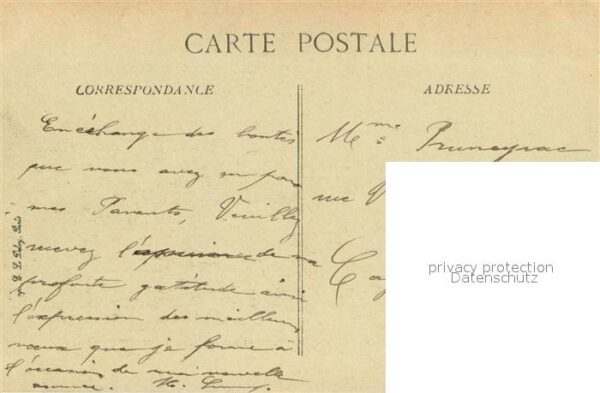 CARTE POSTALE
CORRESPONDANCE
ADRESSE
En échange des bontés
que vous avez eu pour
mes Parents, Veuillez
recevez l'expression de ma
profonte gatitude ainsi
l'expression des meilleurs
voeux que je forme à
l'occasion de la nouvelle
année.
Mme Pruneyrac
rue
privacy protection
Datenschutz